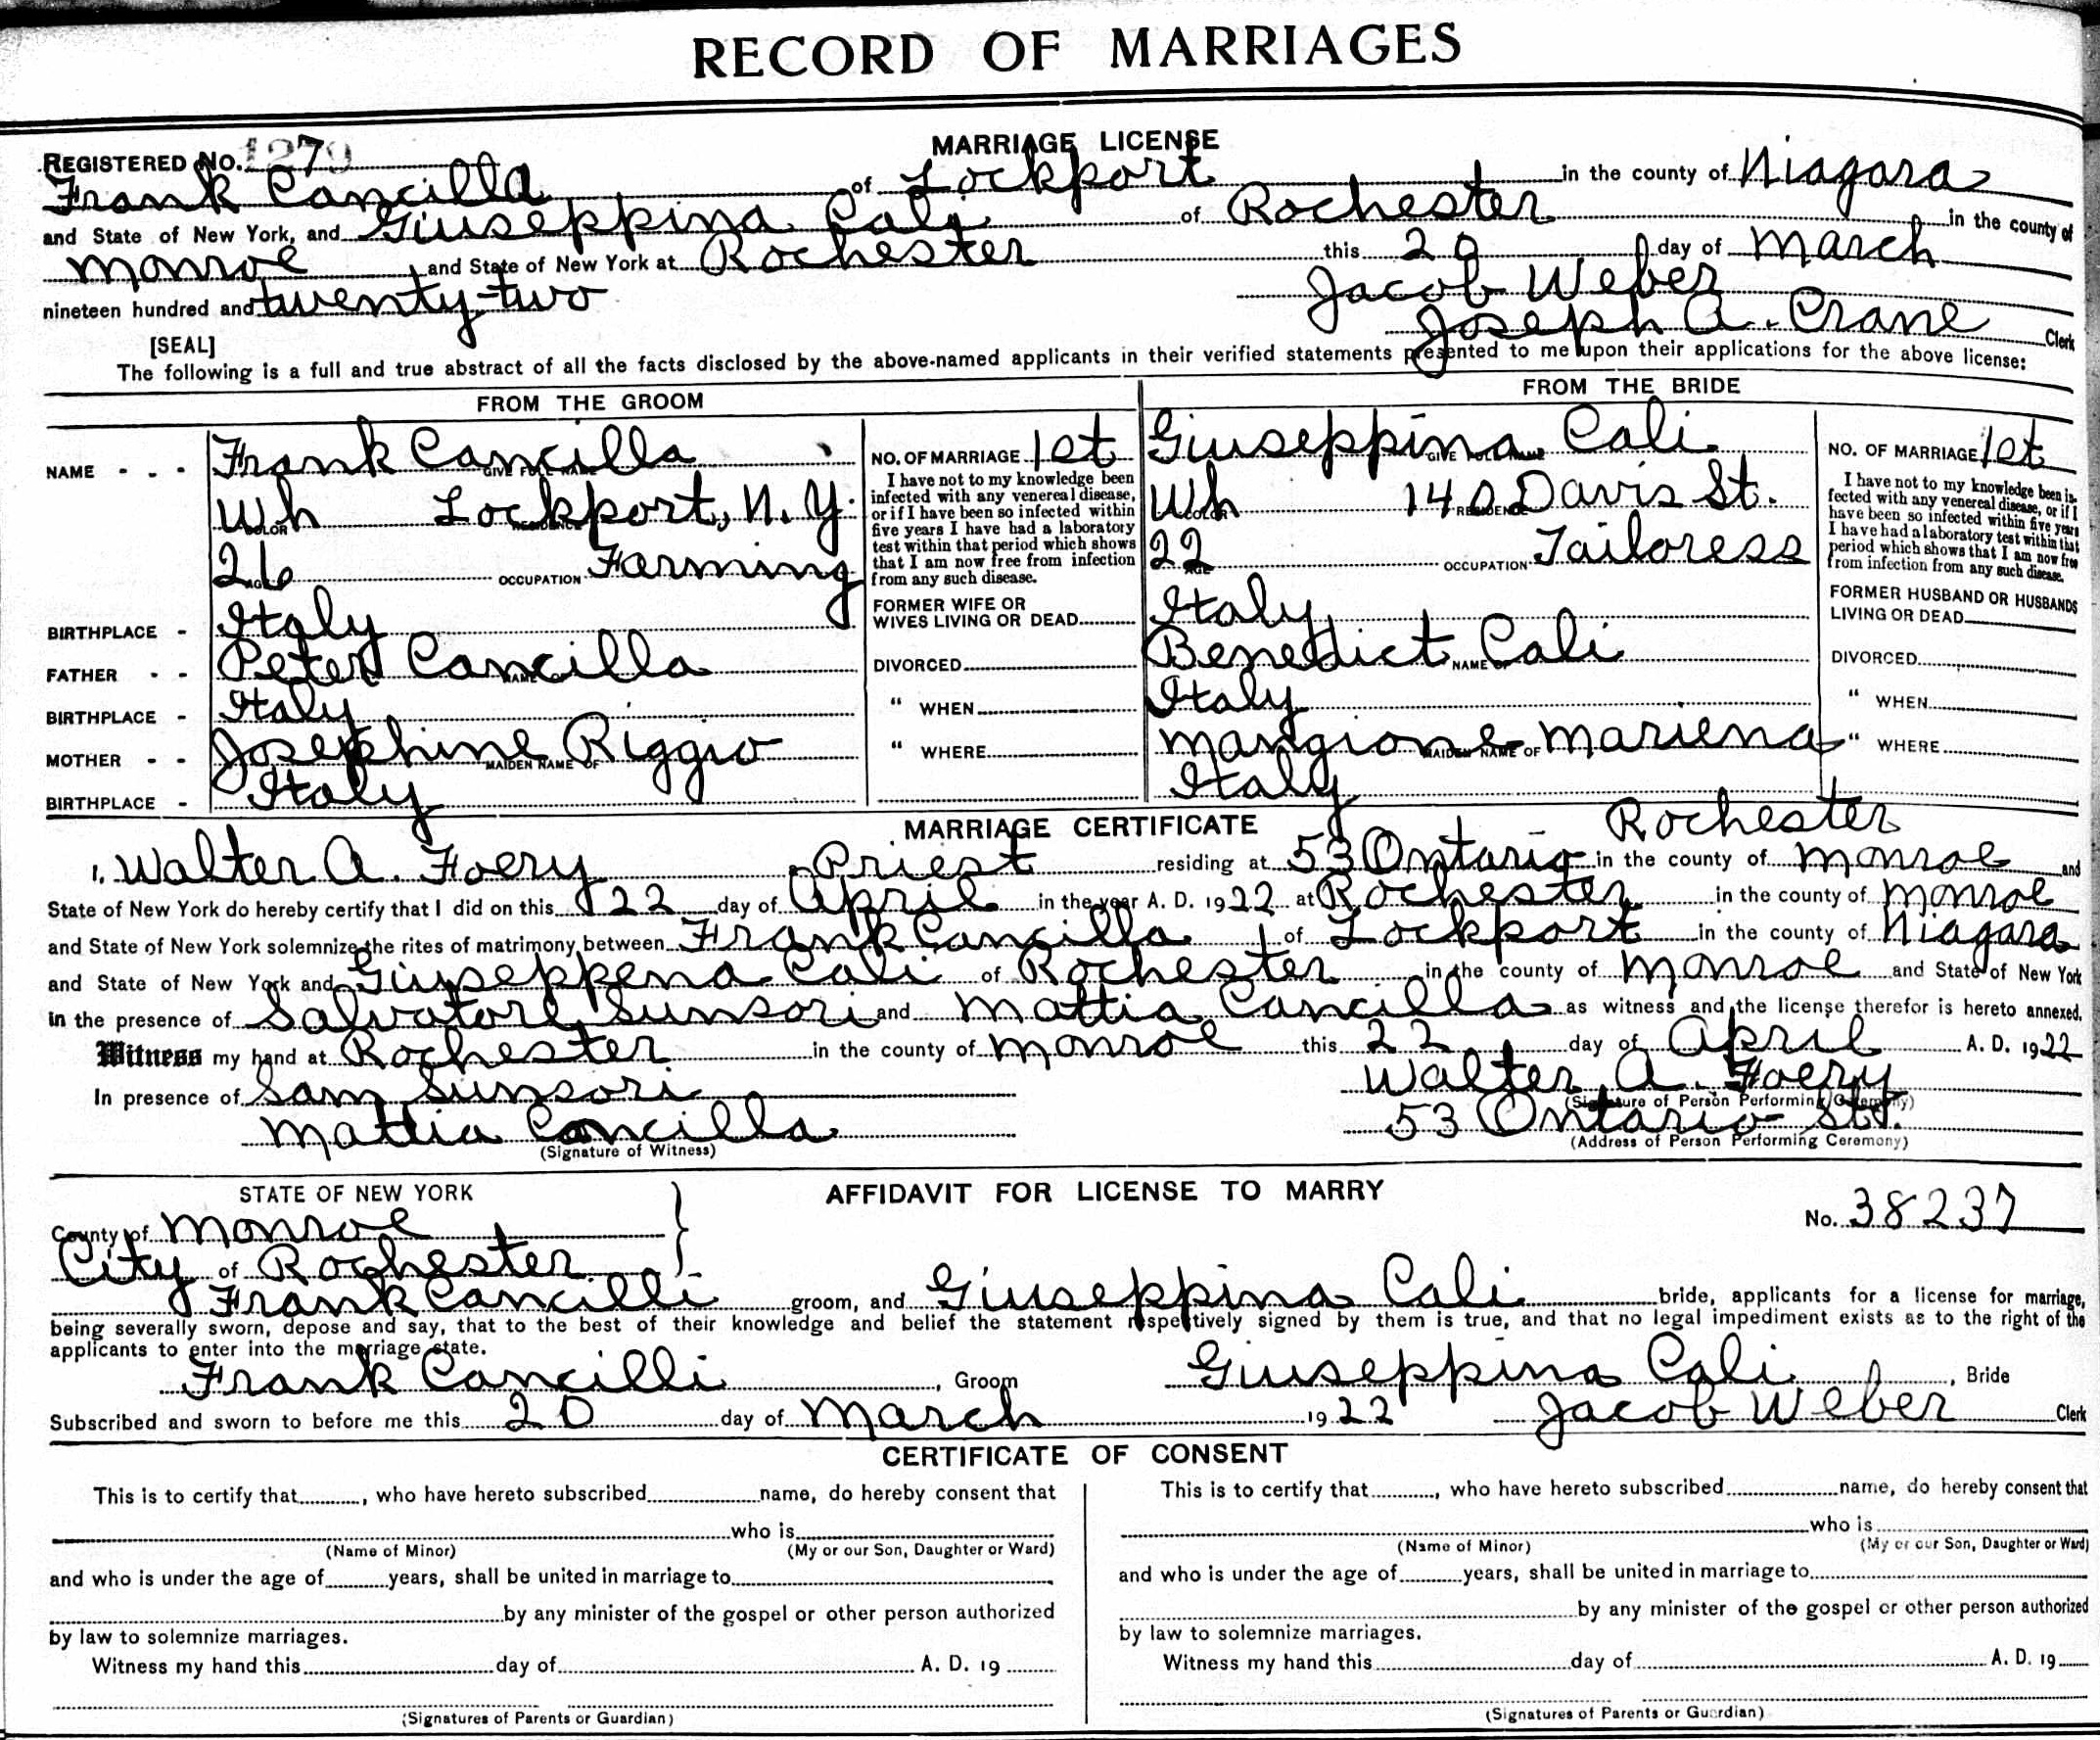 RECORD OF MARRIAGES
MARRIAGE LICENSE
REGISTERED No. 1279
Frank Cancilla of Lockport in the county of Niagara
and State of New York, and Giuseppina Cali of Rochester in the county of
Monroe and State of New York at Rochester this 20 day of March
nineteen hundred and twenty-two Jacob Weber
Joseph A. Crane Clerk
[SEAL]
The following is a full and true abstract of all the facts disclosed by the above-named applicants in their verified statements presented to me upon their applications for the above license:
FROM THE GROOM
NAME - - - Frank Cancilla
GIVE FULL NAME
Wh Lockport, N.Y.
COLOR RESIDENCE
26 OCCUPATION Farming
AGE
BIRTHPLACE - Italy
FATHER - - Peter Cancilla
NAME OF
BIRTHPLACE - Italy
MOTHER - - Josephine Riggio
MAIDEN NAME OF
BIRTHPLACE - Italy
NO. OF MARRIAGE 1st
I have not to my knowledge been
infected with any venereal disease,
or if I have been so infected within
five years I have had a laboratory
test within that period which shows
that I am now free from infection
from any such disease.
FORMER WIFE OR
WIVES LIVING OR DEAD
DIVORCED
" WHEN
" WHERE
FROM THE BRIDE
Giuseppina Cali
GIVE FULL NAME
Wh 140 Davis St.
COLOR RESIDENCE
22 OCCUPATION Tailoress
AGE
Italy
Benedict Cali
NAME OF
Italy
Mangione Mariena
MAIDEN NAME OF
Italy
NO. OF MARRIAGE 1st
I have not to my knowledge been in-
fected with any venereal disease, or if I
have been so infected within five years
I have had a laboratory test within that
period which shows that I am now free
from infection from any such disease.
FORMER HUSBAND OR HUSBANDS
LIVING OR DEAD
DIVORCED
" WHEN
" WHERE
MARRIAGE CERTIFICATE
Rochester
I, Walter A. Foery, Priest residing at 53 Ontario in the county of Monroe and
State of New York do hereby certify that I did on this 22 day of April in the year A. D. 1922 at Rochester in the county of Monroe
and State of New York solemnize the rites of matrimony between Frank Cancilla of Lockport in the county of Niagara
and State of New York and Giuseppena Cali of Rochester in the county of Monroe and State of New York
in the presence of Salvatore Sunsori and Mattia Cancilla as witness and the license therefor is hereto annexed.
Witness my hand at Rochester in the county of Monroe this 22 day of April A. D. 1922
In presence of Sam Sunsori Walter A. Foery
(Signature of Person Performing Ceremony)
Mattia Cancilla 53 Ontario St.
(Signature of Witness) (Address of Person Performing Ceremony)
STATE OF NEW YORK
AFFIDAVIT FOR LICENSE TO MARRY
No. 38237
County of Monroe
City of Rochester
Frank Cancilli groom, and Giuseppina Cali bride, applicants for a license for marriage,
being severally sworn, depose and say, that to the best of their knowledge and belief the statement respectively signed by them is true, and that no legal impediment exists as to the right of the
applicants to enter into the marriage state.
Frank Cancilli, Groom Giuseppina Cali, Bride
Subscribed and sworn to before me this 20 day of March 1922 Jacob Weber Clerk
CERTIFICATE OF CONSENT
This is to certify that , who have hereto subscribed name, do hereby consent that
who is
(Name of Minor) (My or our Son, Daughter or Ward)
and who is under the age of years, shall be united in marriage to
by any minister of the gospel or other person authorized
by law to solemnize marriages.
Witness my hand this day of A. D. 19
(Signatures of Parents or Guardian)
This is to certify that , who have hereto subscribed name, do hereby consent that
who is
(Name of Minor) (My or our Son, Daughter or Ward)
and who is under the age of years, shall be united in marriage to
by any minister of the gospel or other person authorized
by law to solemnize marriages.
Witness my hand this day of A. D. 19
(Signatures of Parents or Guardian)